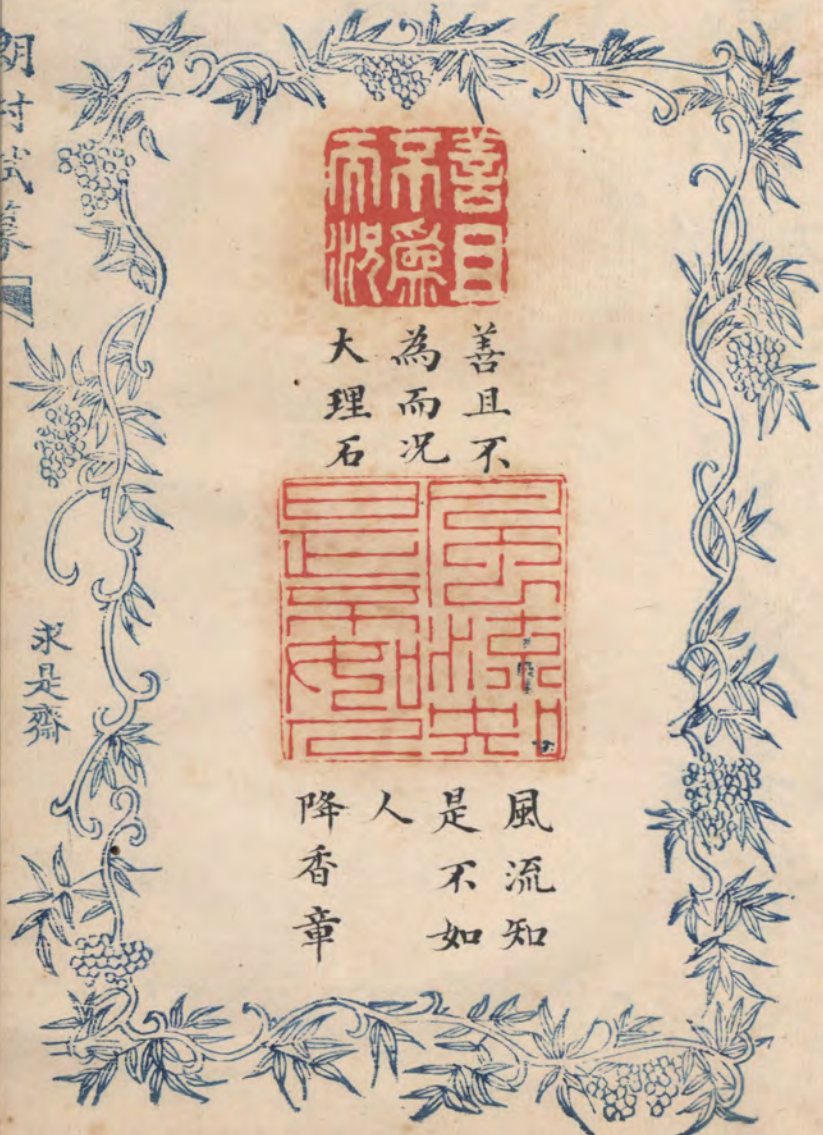 善且
不為
而況
善且不
為而況
大理石
風流知
是不如
人
降香章
求是齋